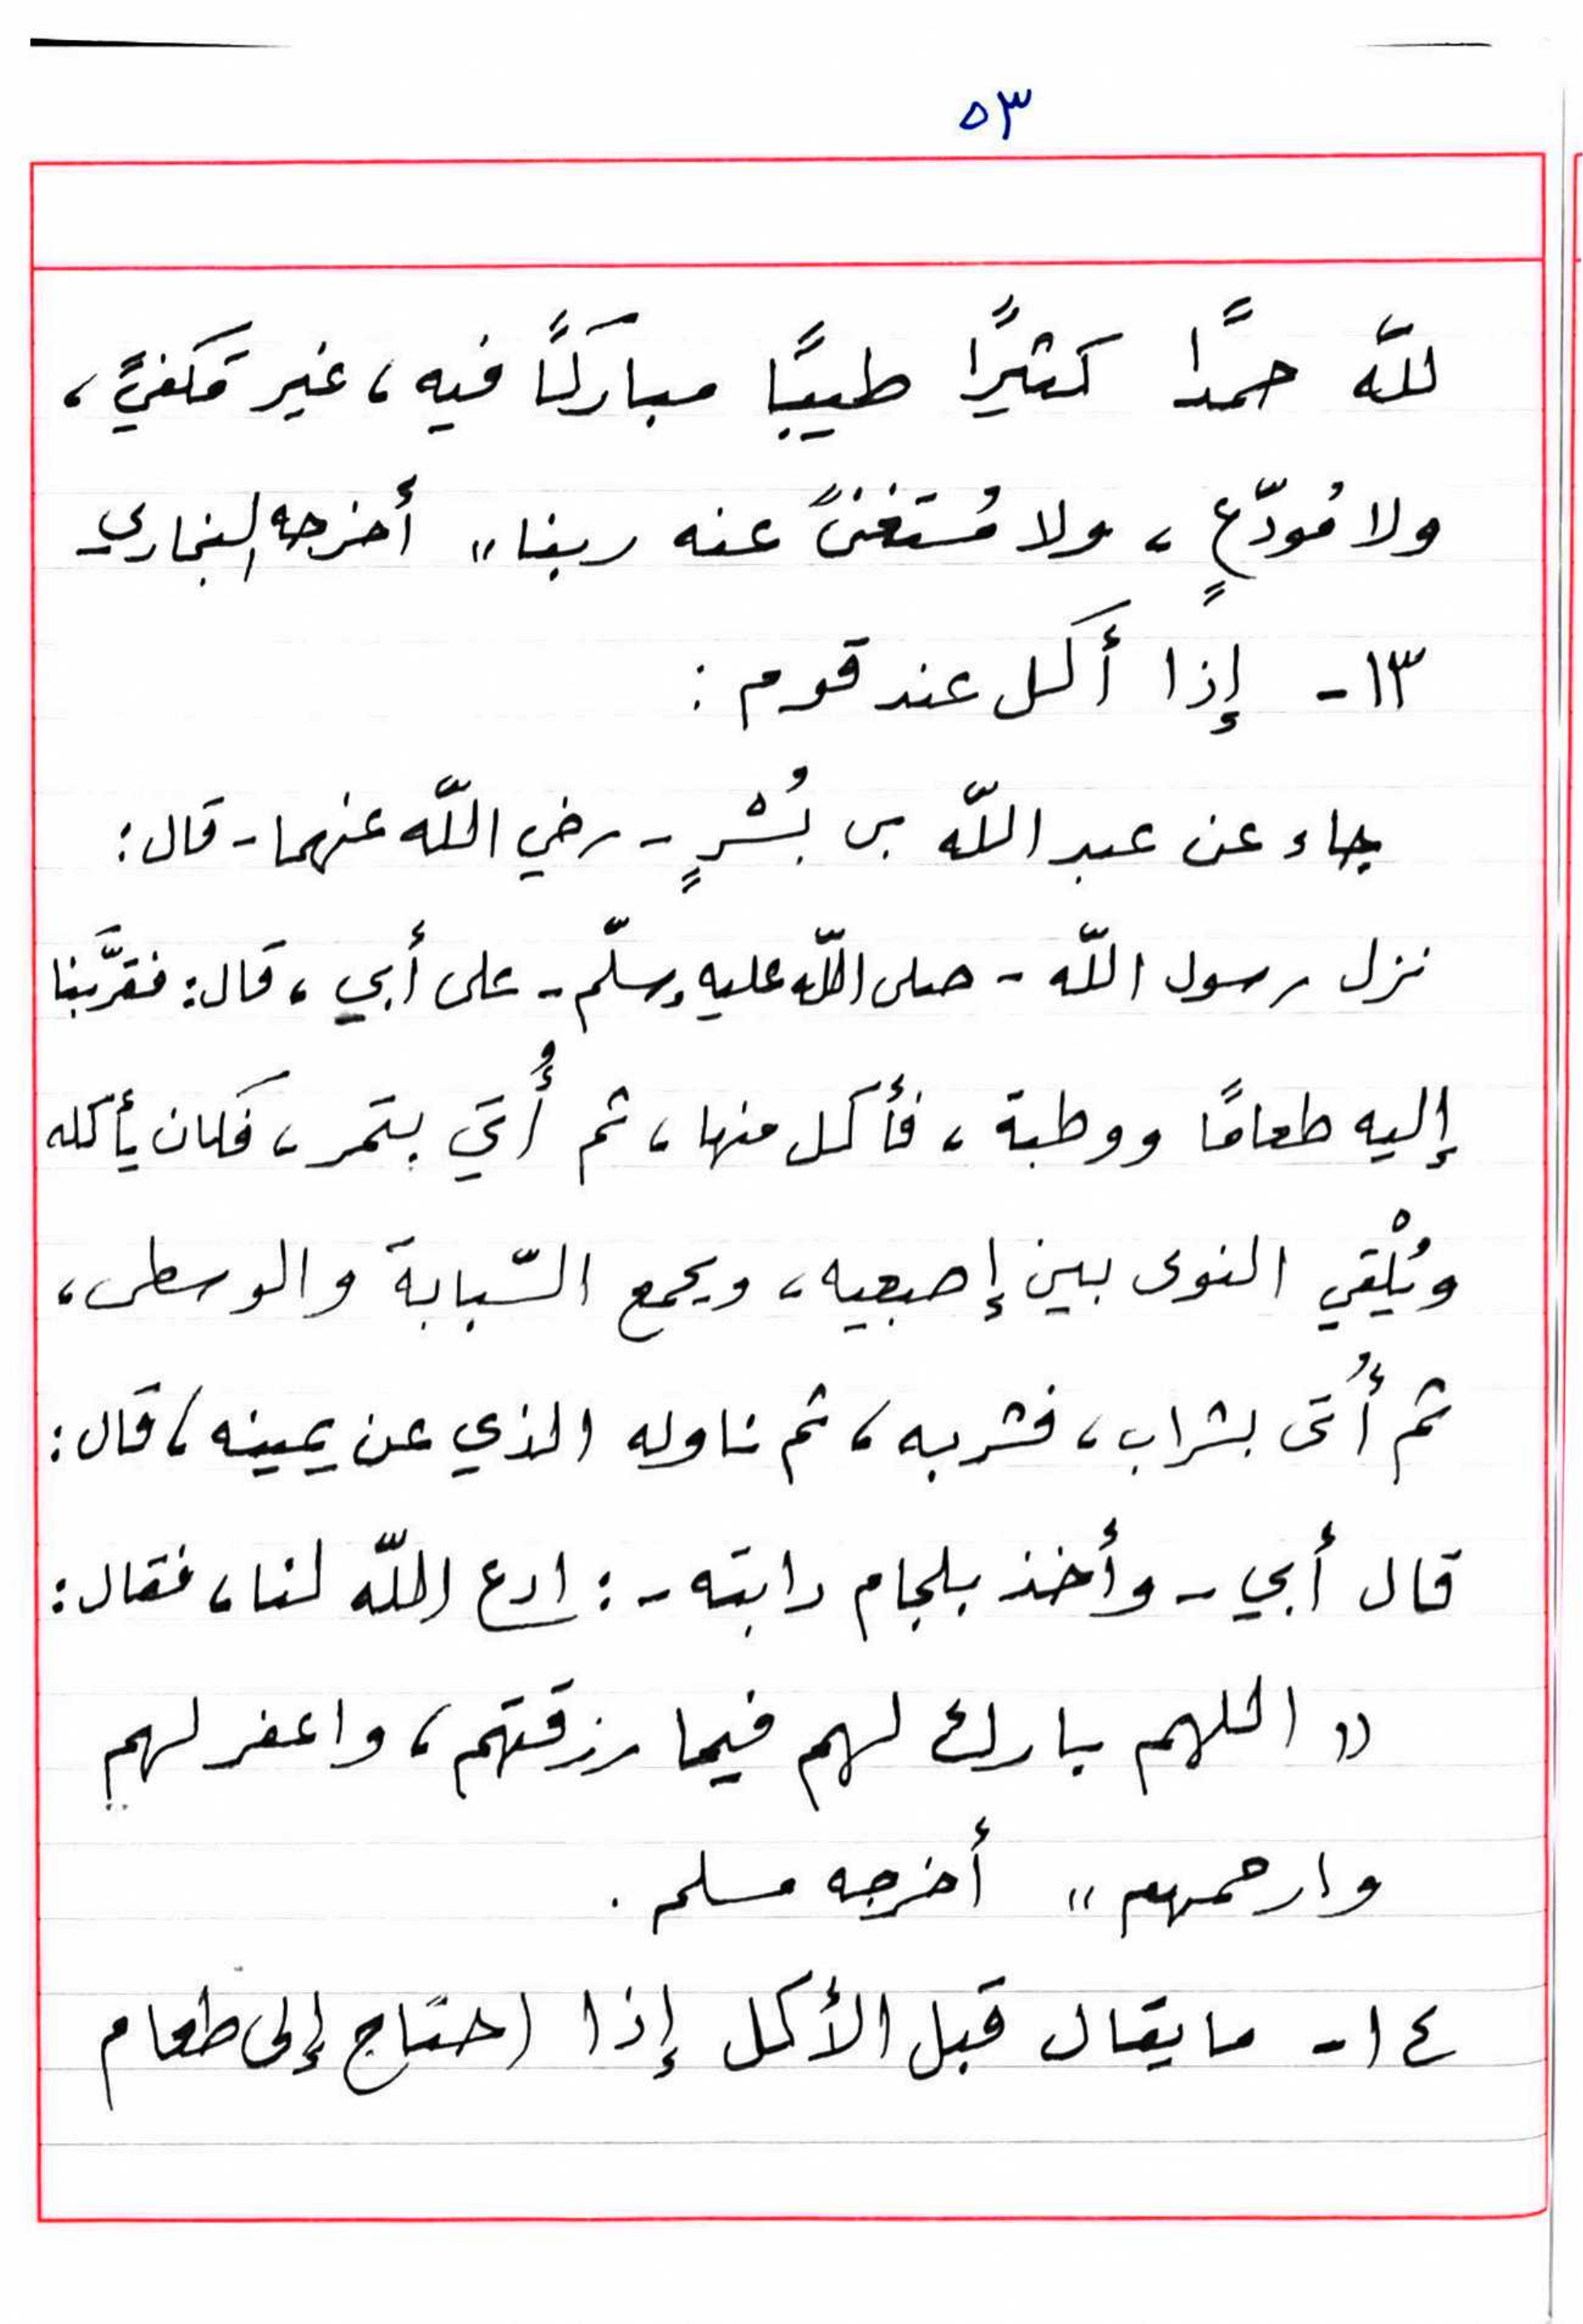 ٥٣
للّه حمدًا كثيرًا طيبًا مباركًا فيه، غير مَكفيٍّ،
ولا مُودّعٍ، ولا مُستغنىً عنه ربنا" أخرجه البخاري
١٣- إذا أكل عند قوم:
جاء عن عبد اللّه بن بُسْرٍ - رضي اللّه عنهما - قال:
نزل رسول اللّه - صلى اللّه عليه وسلّم - على أبي، قال: فقرَّبنا
إليه طعامًا ووطبة، فأكل منها، ثم أُتي بتمر، فكان يأكله
ويُلْقي النوى بين إصبعيه، ويجمع السّبابة والوسطى،
ثم أُتى بشراب، فشربه، ثم ناوله الذي عن يمينه، قال:
قال أبي - وأخذ بلجام دابته -: ادع اللّه لنا، فقال:
"اللهم بارك لهم فيما رزقتهم، واغفر لهم
وارحمهم" أخرجه مسلم.
١٤- ما يقال قبل الأكل إذا احتاج إلى طعام